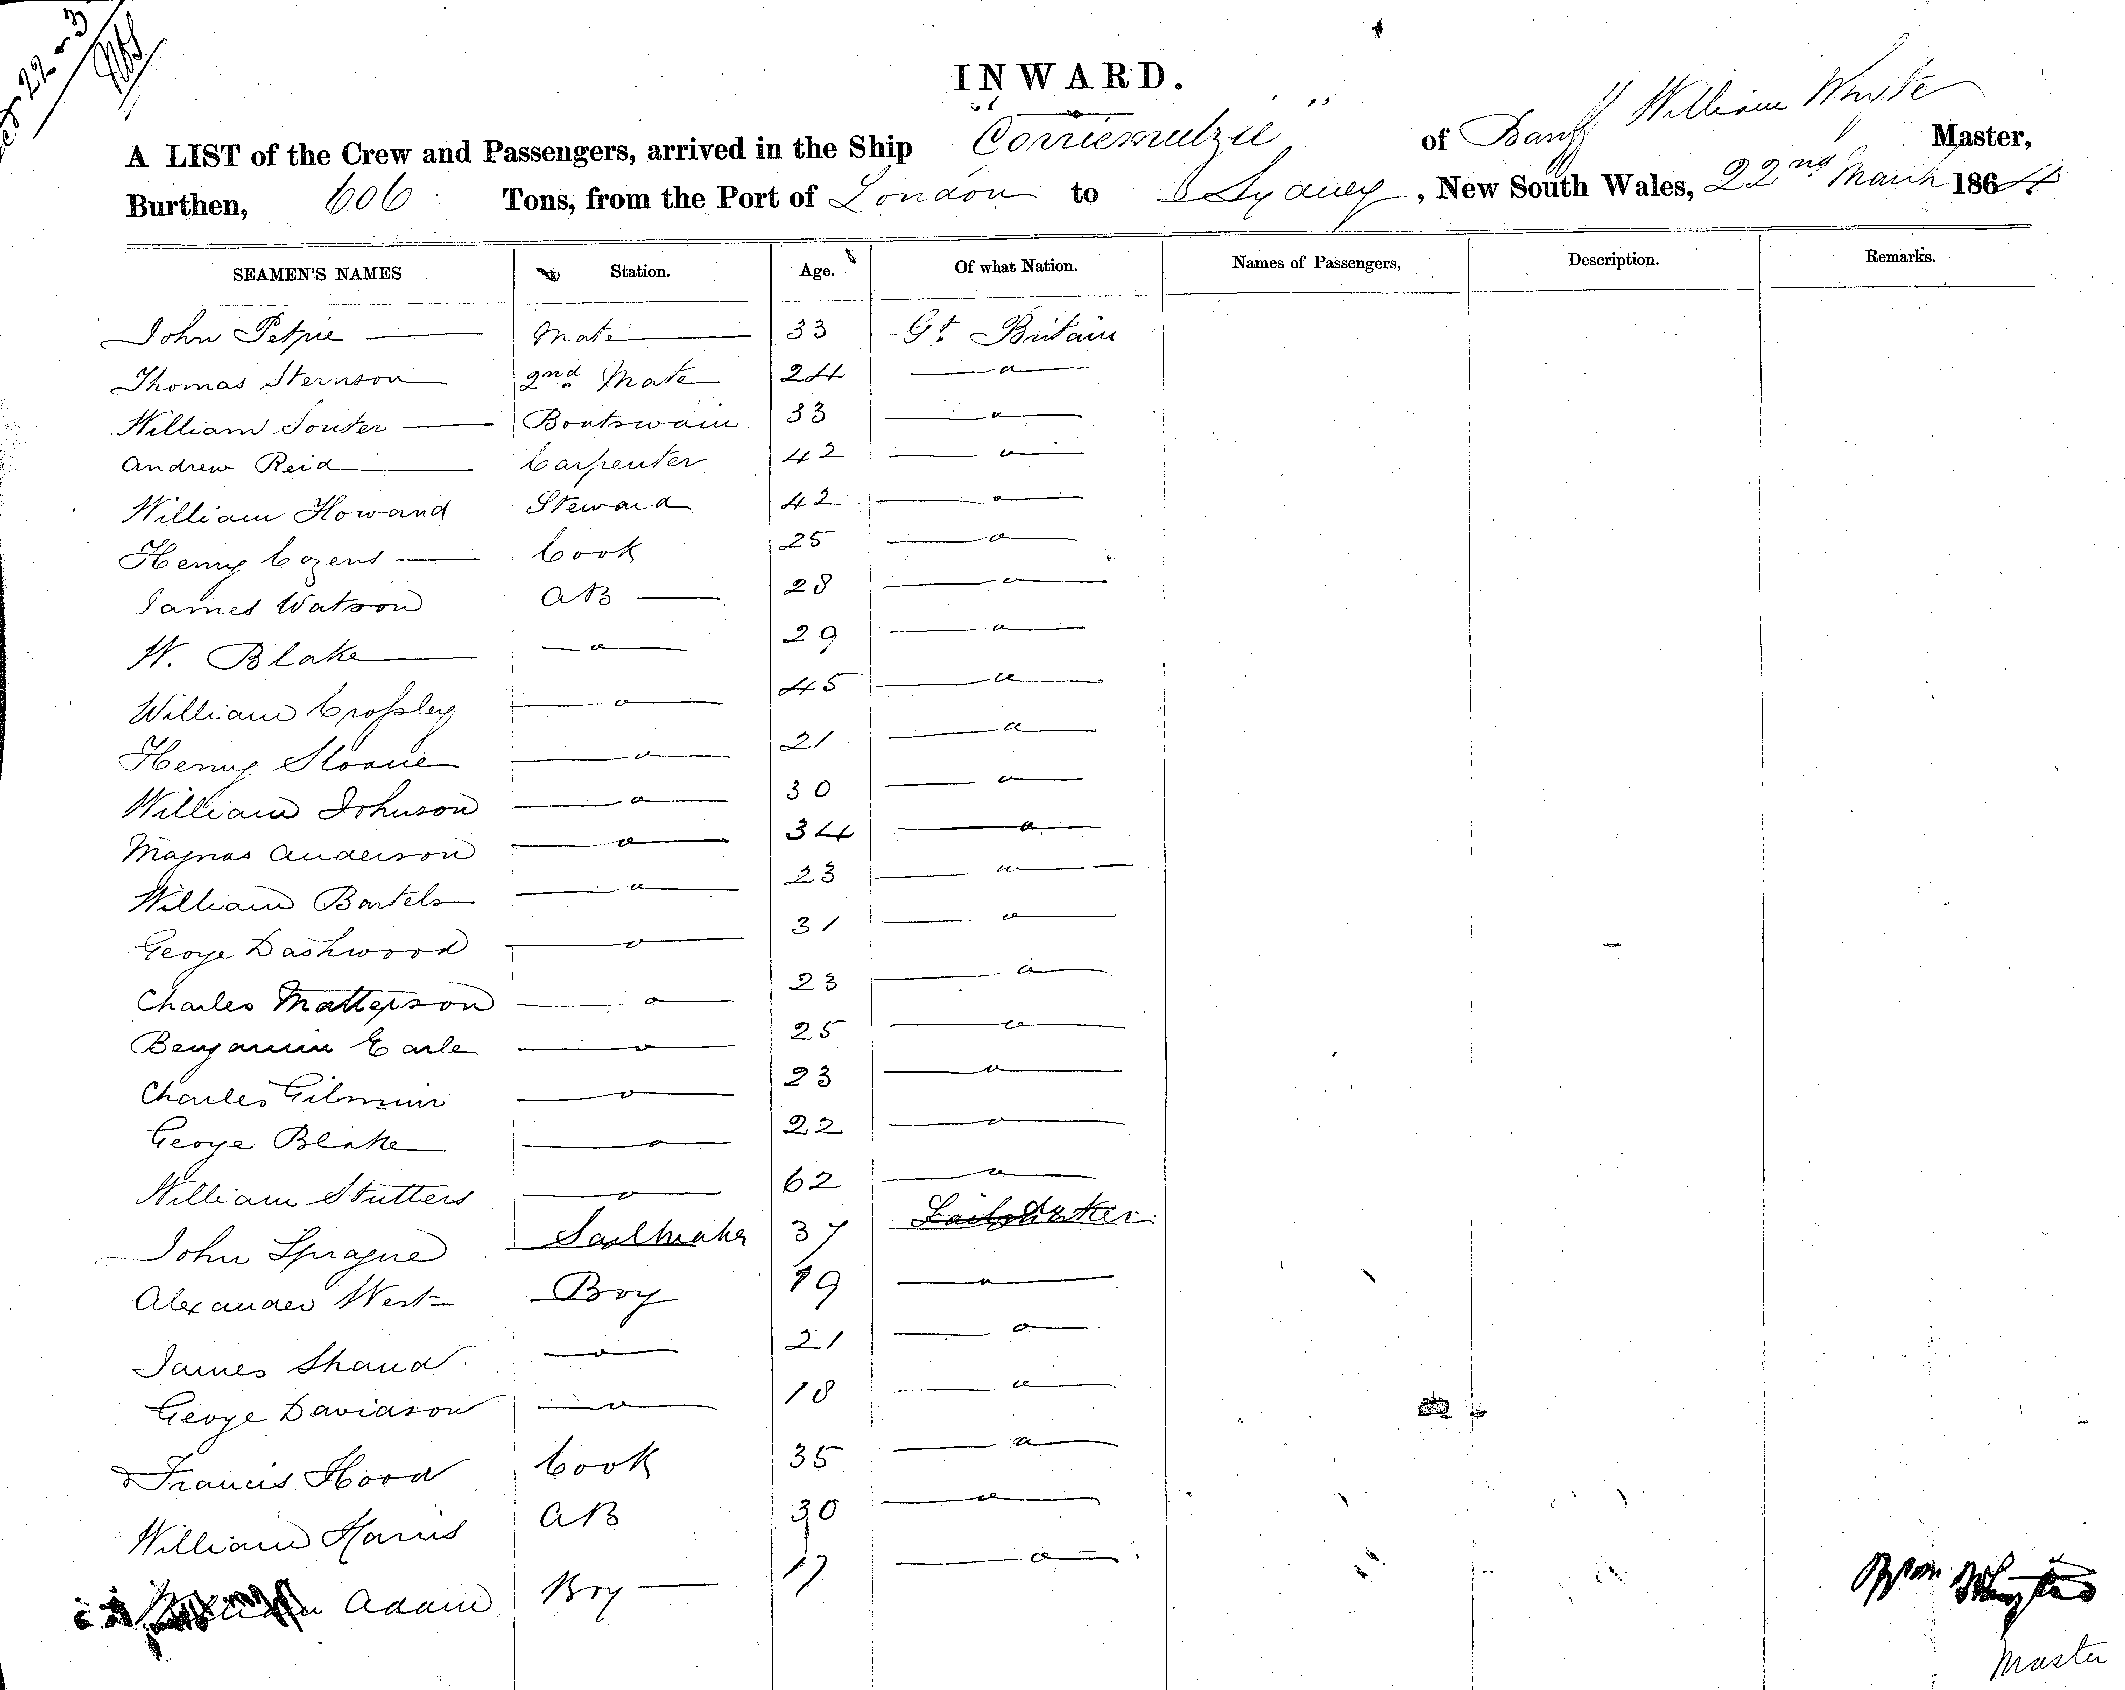 22-3
INWARD.
A LIST of the Crew and Passengers, arrived in the Ship "Corriemulzie" of Banff William Whyte Master,
Burthen, 606 Tons, from the Port of London to Sydney, New South Wales, 22nd March 1864
SEAMEN'S NAMES Station. Age. Of what Nation. Names of Passengers, Description. Remarks.
John Petrie Mate 33 Gt Britain
Thomas Sternson 2nd Mate 24 — o —
William Souter Boatswain 33 — o —
Andrew Reid Carpenter 42 — o —
William Howard Steward 42 — o —
Henry Cozens Cook 25 — o —
James Watson AB 28 — o —
W. Blake — o — 29 — o —
William Crossley — o — 45 — o —
Henry Sloane — o — 21 — o —
William Johnson — o — 30 — o —
Magnas Anderson — o — 34 — o —
William Bartels — o — 23 — o —
George Dashwood — o — 31 — o —
Charles Matterson — o — 23 — o —
Benjamin Earle — o — 25 — o —
Charles Gilmuir — o — 23 — o —
George Blake — o — 22 — o —
William Stutters — o — 62 — o —
John Sprague Sailmaker 37
Alexander West Boy 19 — o —
James Shand — o — 21 — o —
George Davidson — o — 18 — o —
Francis Hood Cook 35 — o —
William Harris AB 30 — o —
William Adam Boy 17 — o —
Wm Whyte
Master